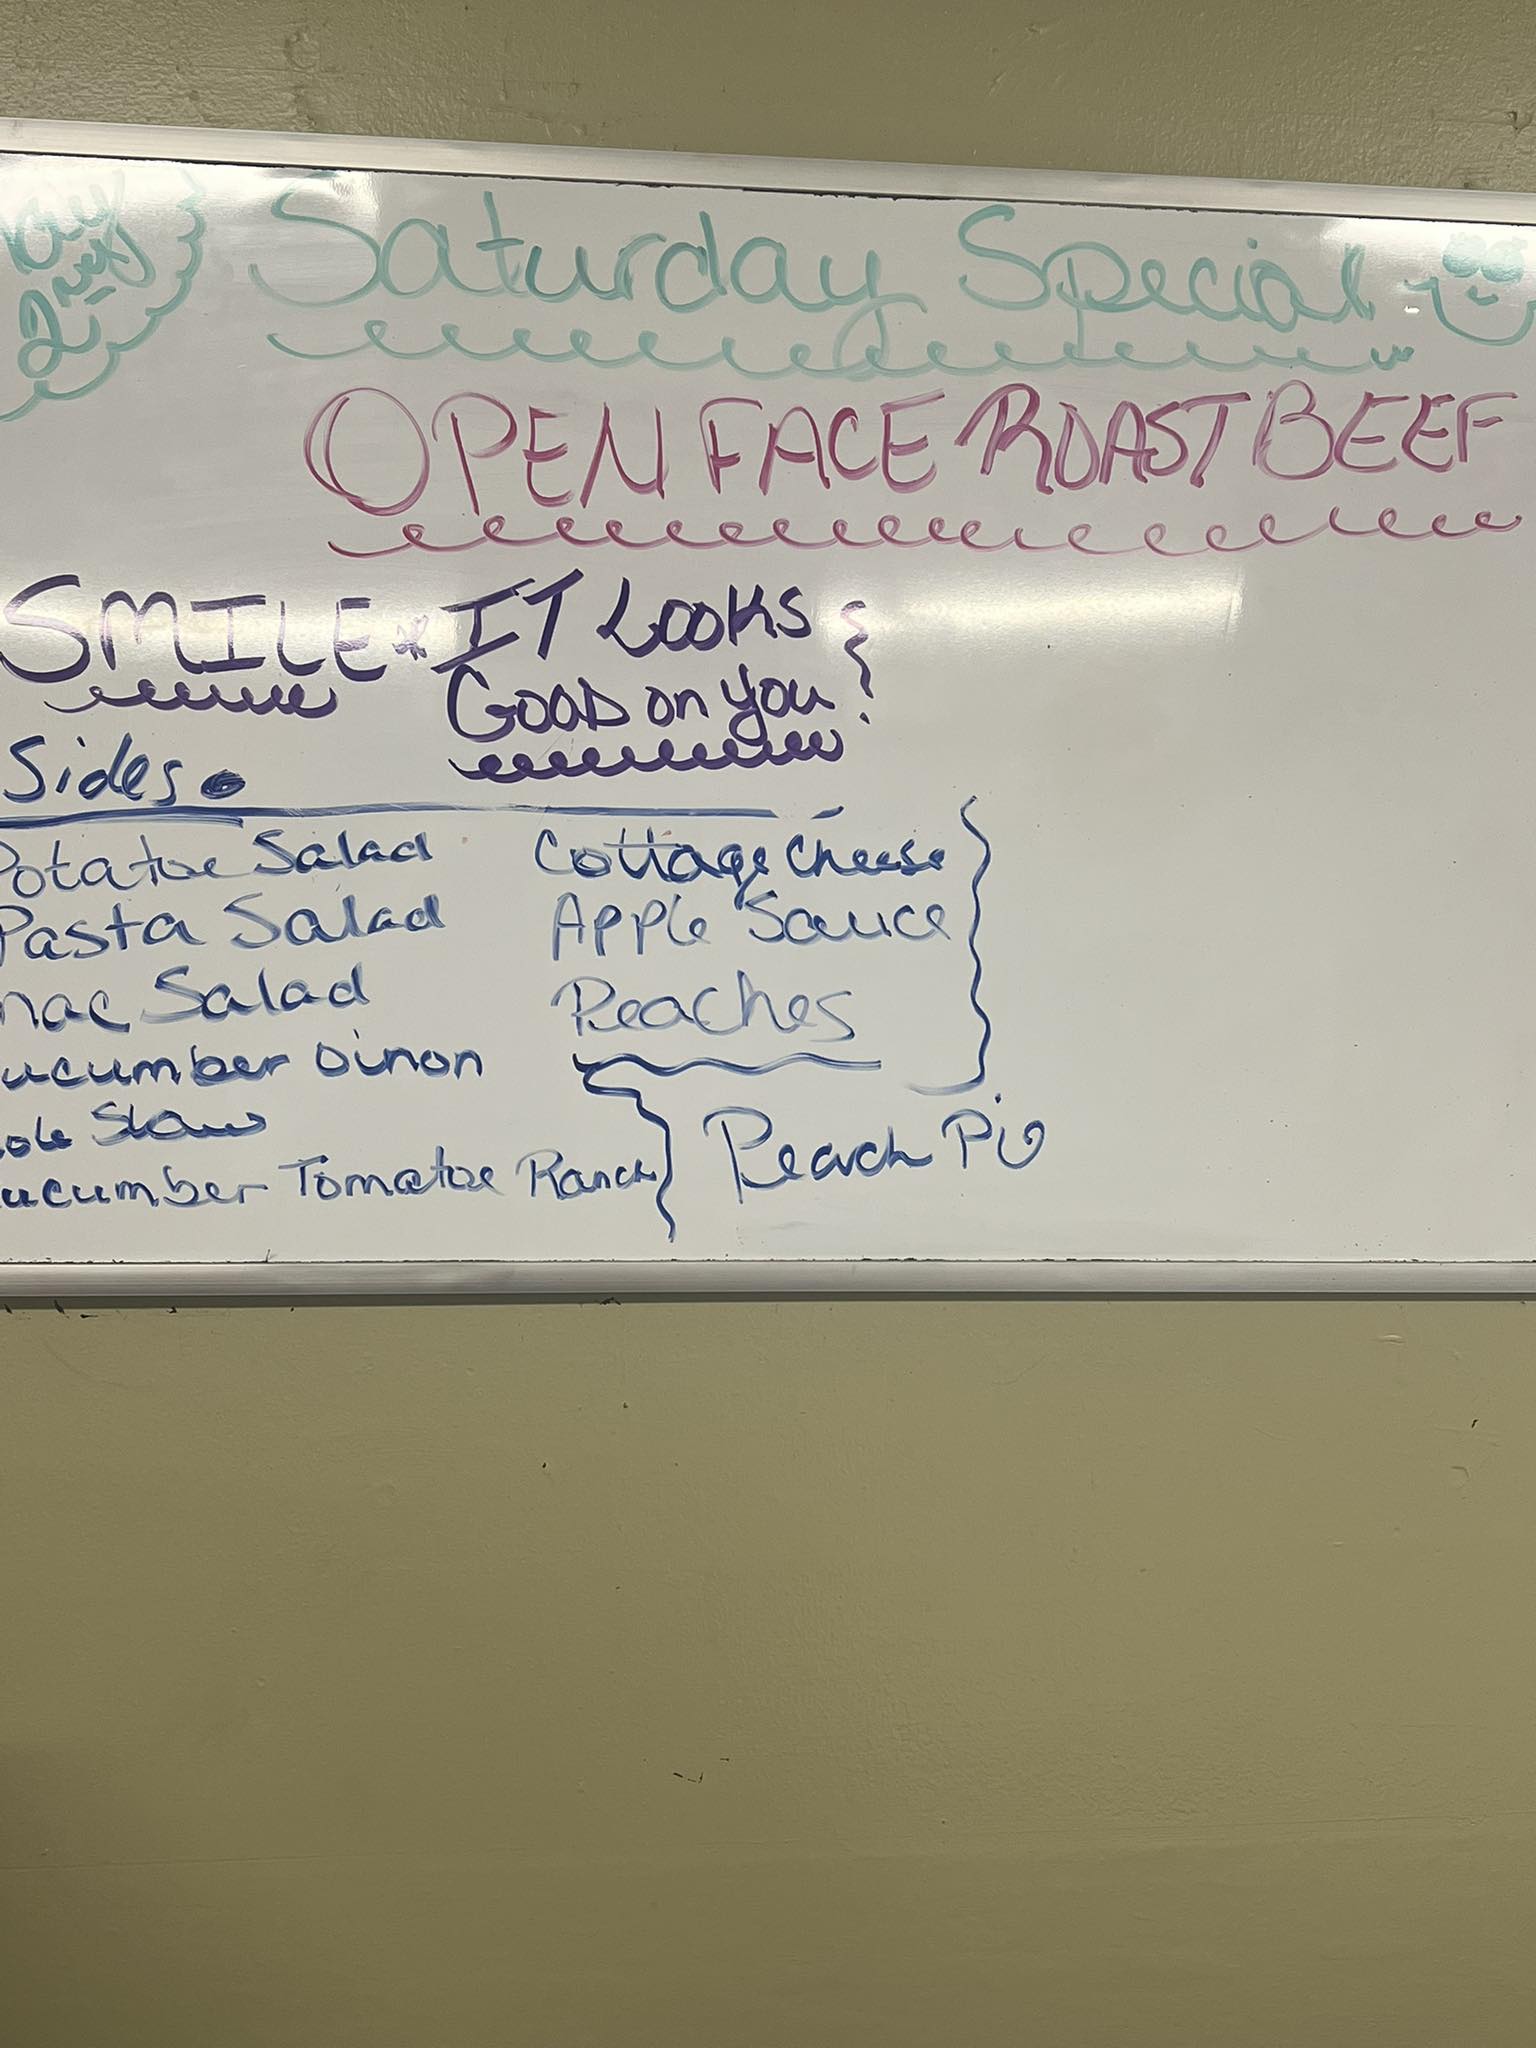 Saturday Special
OPEN FACE ROAST BEEF
SMILE * IT LOOKS
GOOD on you!
Sides.
Potatoe Salad
Pasta Salad
mac Salad
ucumber Oinon
ole Slaw
ucumber Tomatoe Ranch
Cottage Cheese
Apple Sauce
Peaches
Peach Pie